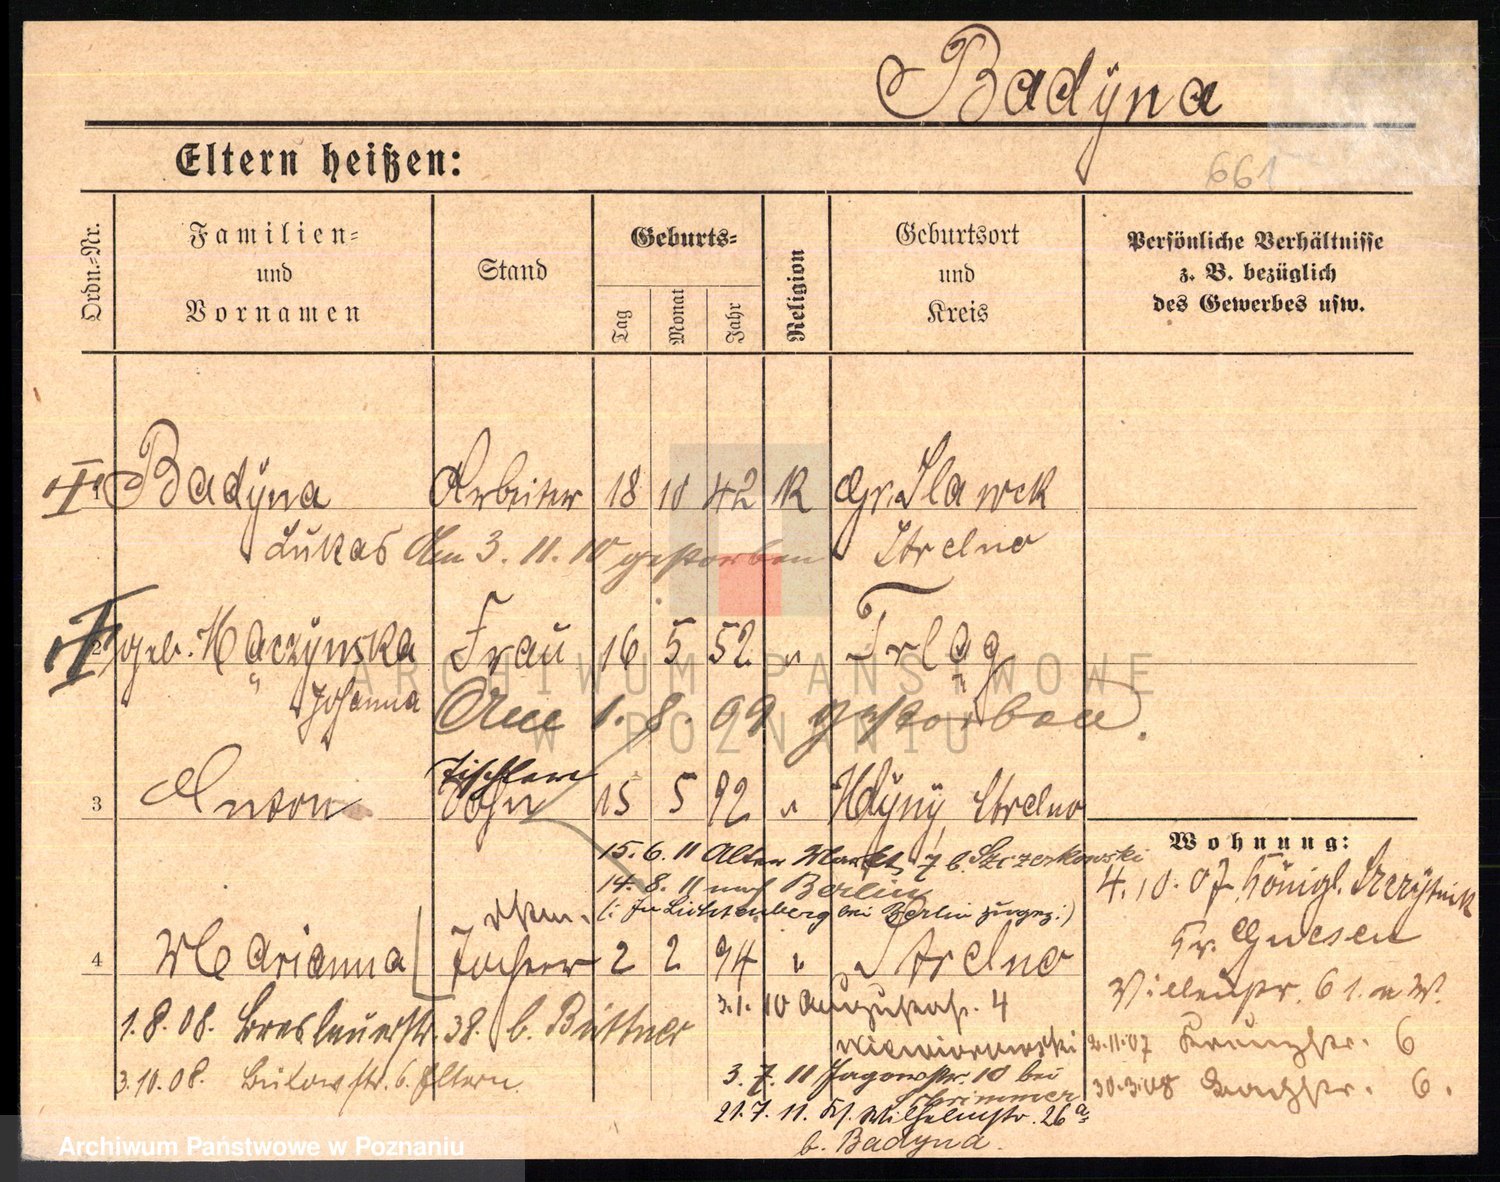 Badyna
661
Eltern heißen:
Ordn.-Nr.
Familien-
und
Vornamen
Stand
Geburts-
Tag
Monat
Jahr
Religion
Geburtsort
und
Kreis
Persönliche Verhältnisse
z. B. bezüglich
des Gewerbes usw.
1 Badyna Arbeiter 18 10 42 K Gr. Slawsk
Lukas Am 3. 11. 10 gestorben Strelno
2 geb. Maczynska Frau 16 5 52 " Trląg
Johanna Am 1. 8. 99 gestorben.
Tischler
3 Anton Sohn 15 5 92 " Strelno
15. 6. 11 Alter Markt 7 b. Szczeskowski
14. 8. 11 nach Berlin
(: In Lichtenberg bei Berlin zugez. :)
4 Marianna Tochter 2 2 94 " Strelno
3. 1. 10 Augustastr. 4
1. 8. 08. Breslauerstr. 38. b. Büttner
3. 10. 08. Bülowstr. 6. Eltern
3. 7. 11 Jagowstr. 10 bei
21. 7. 11. Kl. Wilhelmstr. 26a
b. Badyna.
Wohnung:
4. 10. 07 Königl.
Kr. Gnesen
61.
2. 11. 07 Kreuzstr. 6
30. 3. 08 Bachstr. 6.
ARCHIWUM PAŃSTWOWE
W POZNANIU
Archiwum Państwowe w Poznaniu